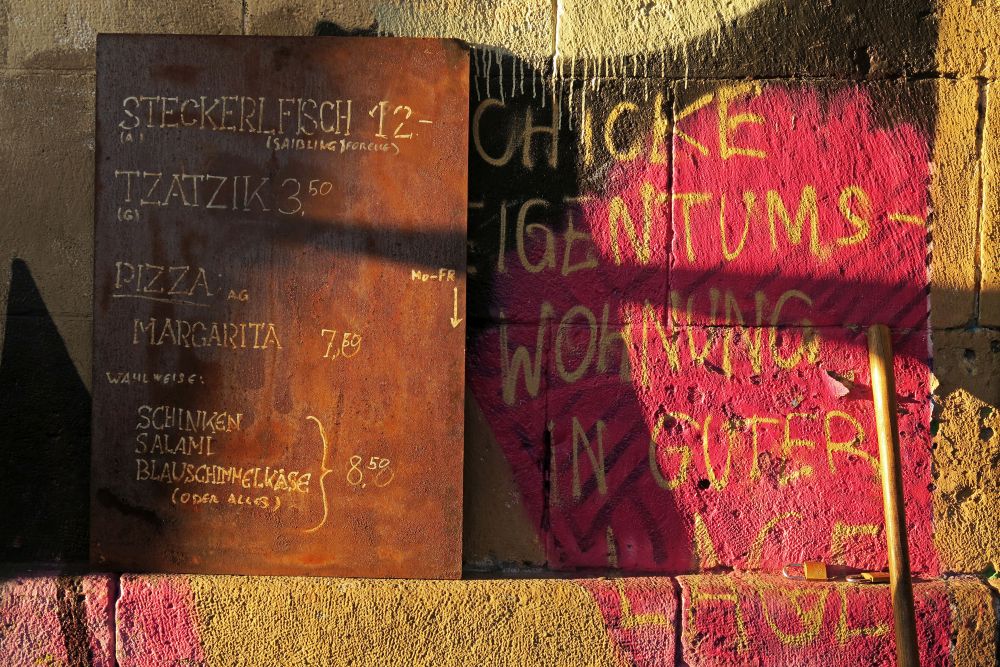 STECKERLFISCH 12.-
(A) (SAIBLING/FORELLE)
TZATZIK 3,50
(G)
MO-FR
PIZZA AG
MARGARITA 7,50
WAHLWEISE:
SCHINKEN
SALAMI
BLAUSCHIMMELKÄSE 8,50
(ODER ALLES)
SCHICKE
EIGENTUMS-
WOHNUNG
IN GUTER
LAGE
LAGE